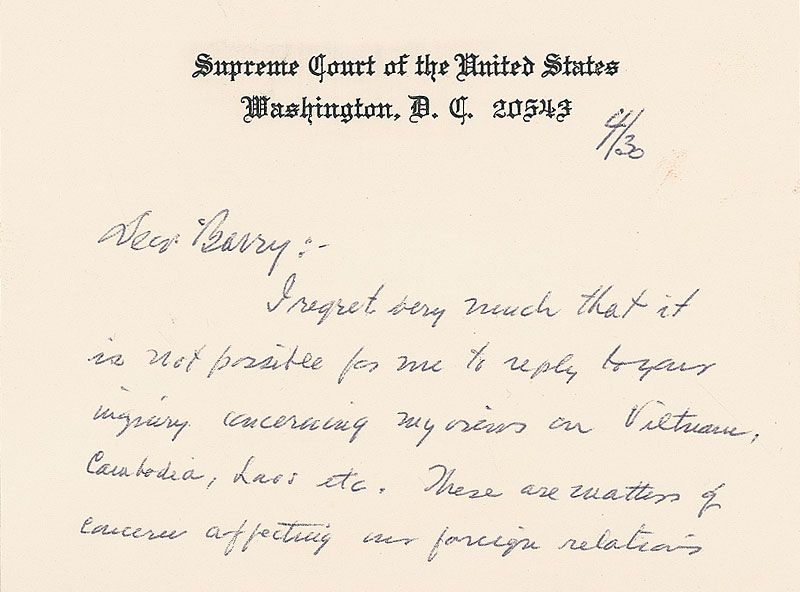 Supreme Court of the United States
Washington, D. C. 20543
4/30
Dear Barry:-
I regret very much that it
is not possible for me to reply to your
inquiry concerning my views on Vietnam,
Cambodia, Laos etc. These are matters of
concern affecting our foreign relations